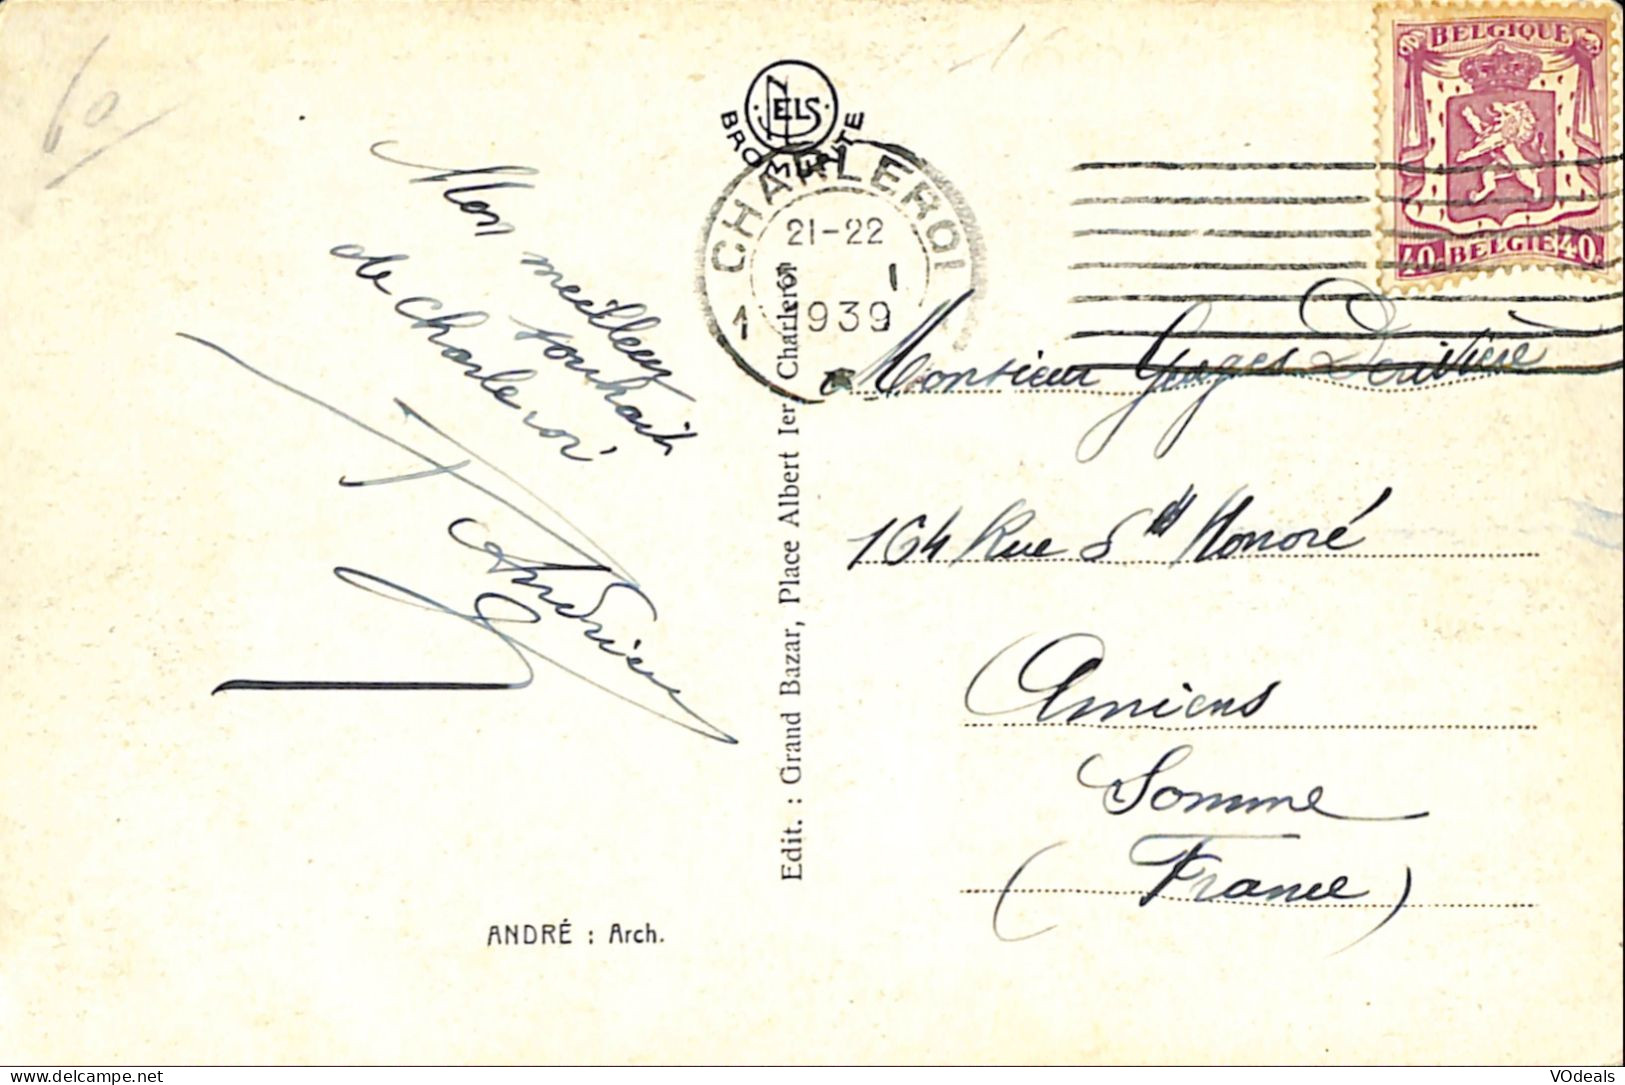 60
NELS
BROMURITE
CHARLEROI
21-22
1
1939
BELGIQUE
40 BELGIE 40
Mon meilleur
souhait
de Charleroi
Andrieu
Monsieur Georges
164 Rue St Honoré
Amiens
Somme
(France)
Edit. : Grand Bazar, Place Albert Ier Charleroi
ANDRÉ : Arch.
VOdeals